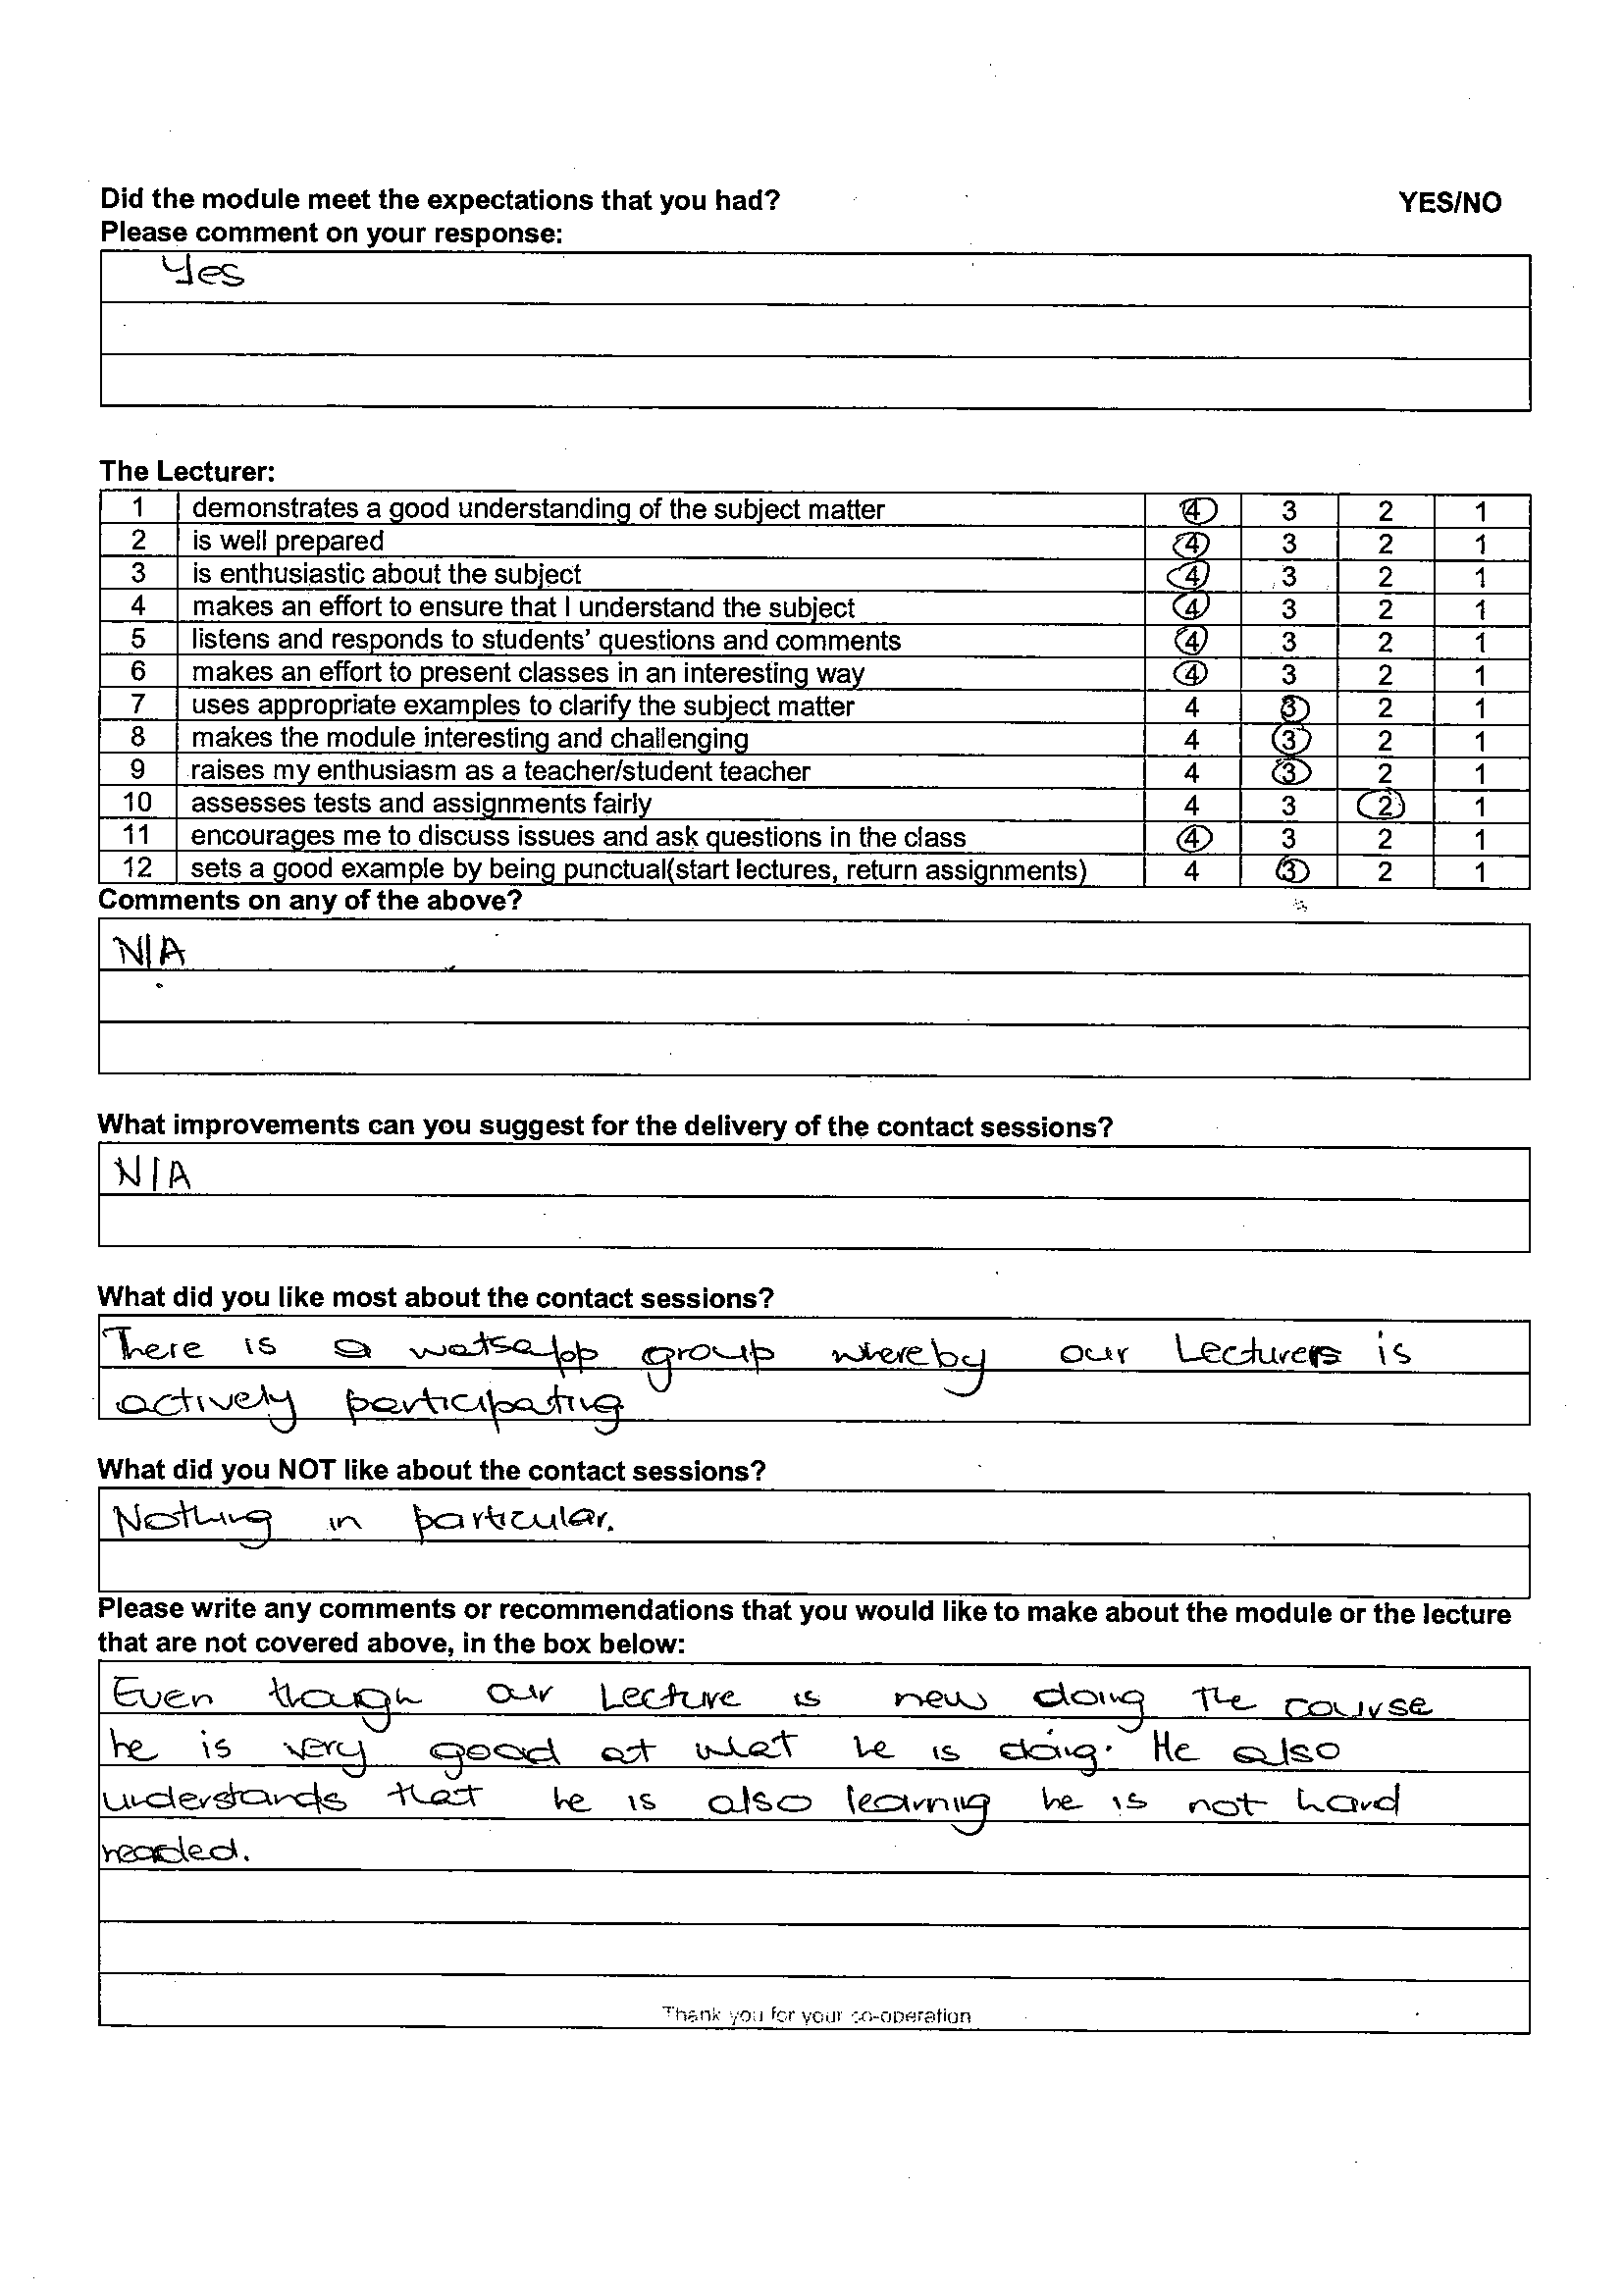 Did the module meet the expectations that you had? YES/NO
Please comment on your response:
Yes
The Lecturer:
1 demonstrates a good understanding of the subject matter 4 3 2 1
2 is well prepared 4 3 2 1
3 is enthusiastic about the subject 4 3 2 1
4 makes an effort to ensure that I understand the subject 4 3 2 1
5 listens and responds to students' questions and comments 4 3 2 1
6 makes an effort to present classes in an interesting way 4 3 2 1
7 uses appropriate examples to clarify the subject matter 4 3 2 1
8 makes the module interesting and challenging 4 3 2 1
9 raises my enthusiasm as a teacher/student teacher 4 3 2 1
10 assesses tests and assignments fairly 4 3 2 1
11 encourages me to discuss issues and ask questions in the class 4 3 2 1
12 sets a good example by being punctual(start lectures, return assignments) 4 3 2 1
Comments on any of the above?
N/A
What improvements can you suggest for the delivery of the contact sessions?
N/A
What did you like most about the contact sessions?
There is a watsapp group whereby our Lecturers is
actively participating
What did you NOT like about the contact sessions?
Nothing in particular.
Please write any comments or recommendations that you would like to make about the module or the lecture
that are not covered above, in the box below:
Even though our Lecture is new doing the course
he is very good at what he is doing. He also
understands that he is also learning he is not hard
headed.
Thank you for your co-operation